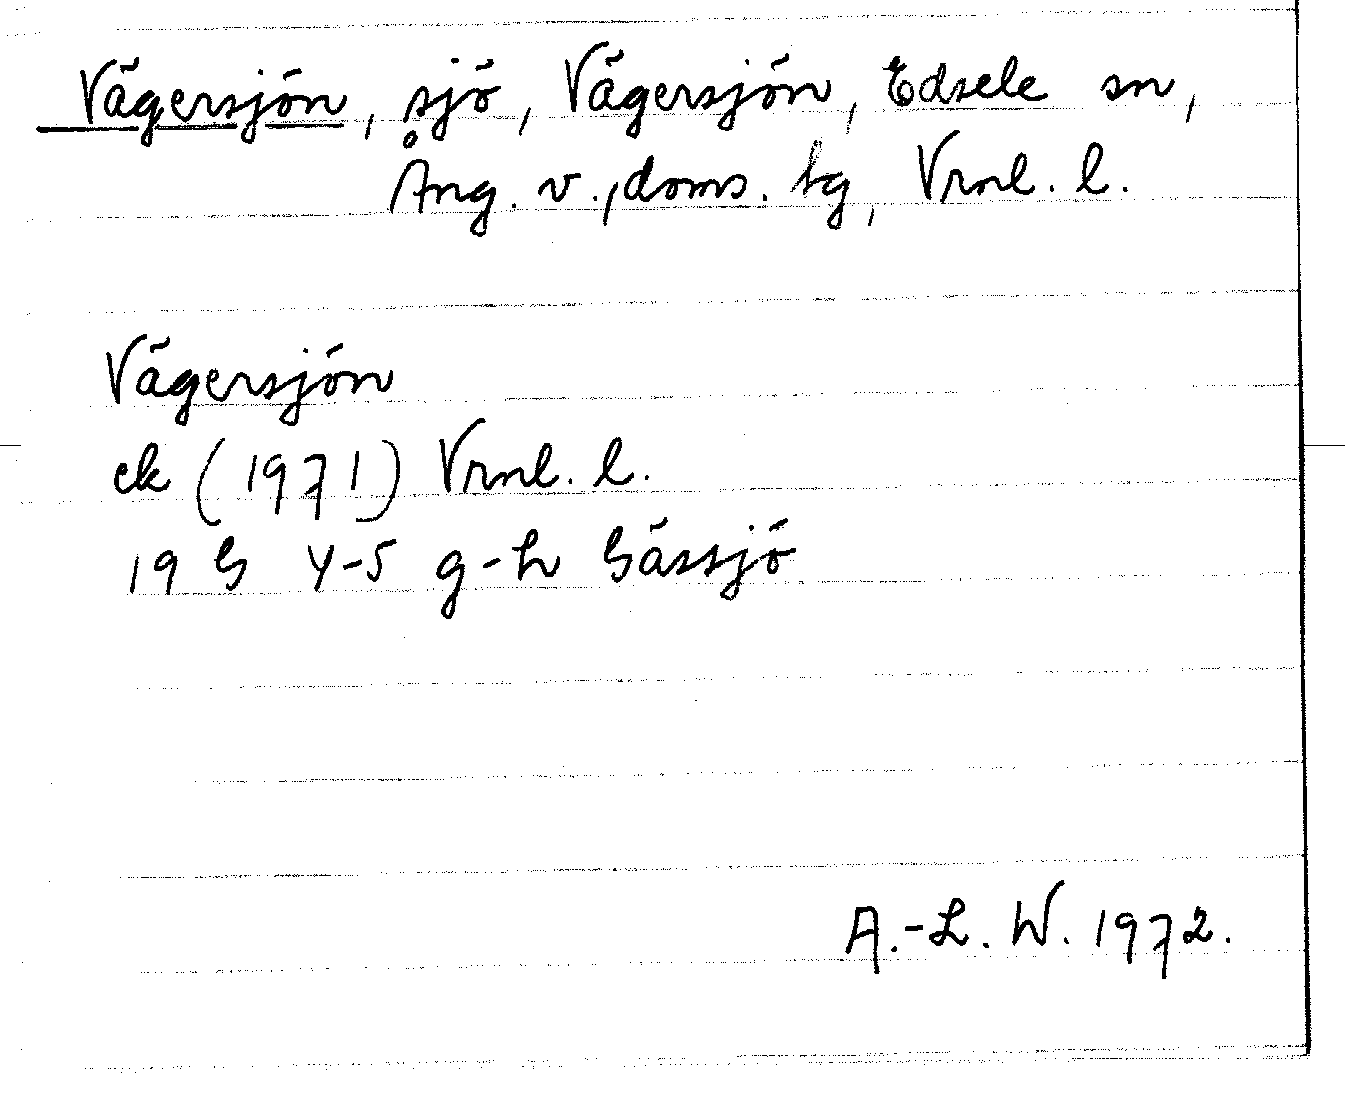 Vägersjön, sjö, Vägersjön, Edsele sn,
Ång. v., doms. tg, Vrnl. l.
Vägersjön
ek (1971) Vrnl. l.
19 G 4-5 g-h Gåssjö
A.-L. W. 1972.